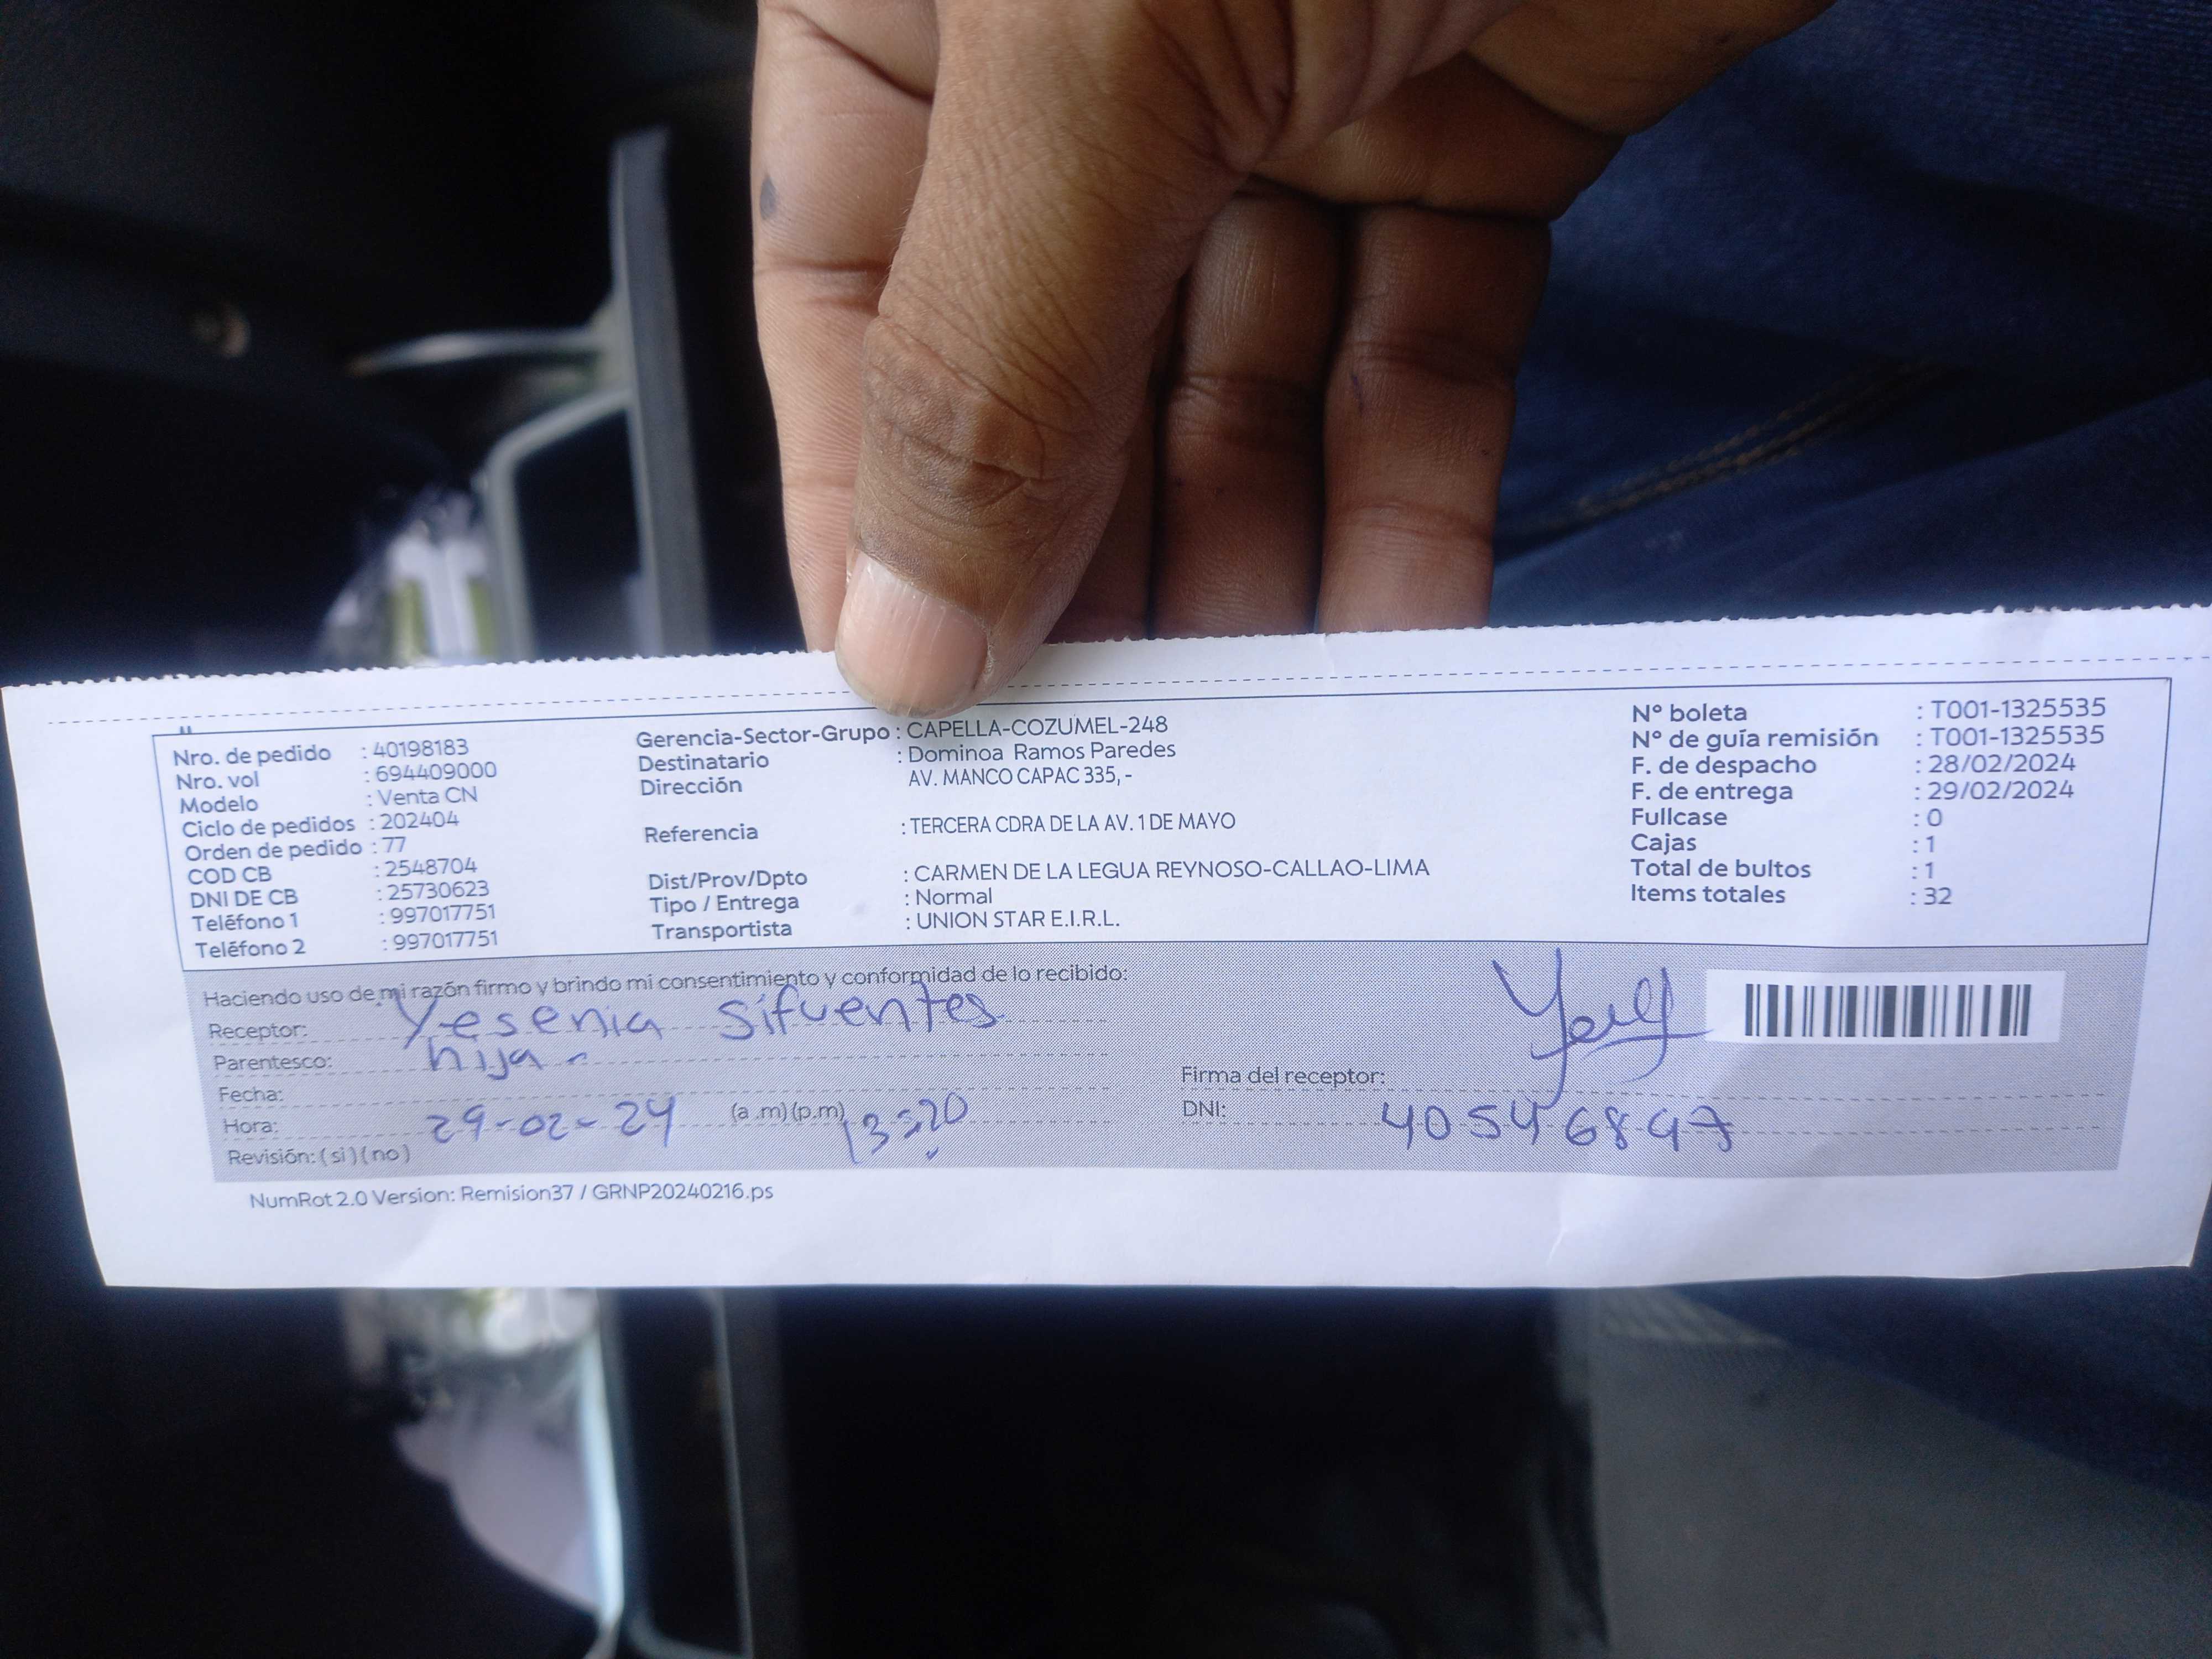 Nro. de pedido : 40198183
Nro. vol : 694409000
Modelo : Venta CN
Ciclo de pedidos : 202404
Orden de pedido : 77
COD CB : 2548704
DNI DE CB : 25730623
Teléfono 1 : 997017751
Teléfono 2 : 997017751
Gerencia-Sector-Grupo : CAPELLA-COZUMEL-248
Destinatario : Dominoa Ramos Paredes
Dirección AV. MANCO CAPAC 335, -
Referencia : TERCERA CDRA DE LA AV. 1 DE MAYO
Dist/Prov/Dpto : CARMEN DE LA LEGUA REYNOSO-CALLAO-LIMA
Tipo / Entrega : Normal
Transportista : UNION STAR E.I.R.L.
N° boleta : T001-1325535
N° de guía remisión : T001-1325535
F. de despacho : 28/02/2024
F. de entrega : 29/02/2024
Fullcase : 0
Cajas : 1
Total de bultos : 1
Items totales : 32
Haciendo uso de mi razón firmo y brindo mi consentimiento y conformidad de lo recibido:
Receptor: Yesenia Sifuentes
Parentesco: hija
Fecha:
Hora: 29-02-24 (a.m) (p.m) 13:20
Revisión: (si) (no)
Firma del receptor:
DNI: 40546847
NumRot 2.0 Version: Remision37 / GRNP20240216.ps